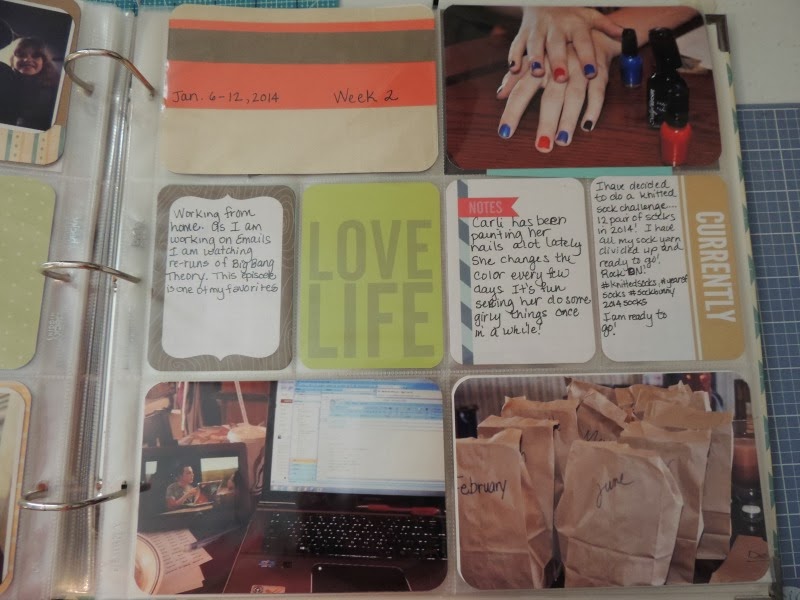 Jan. 6-12, 2014 Week 2
Working from
home.. As I am
working on Emails
I am watching
re-runs of Big Bang
Theory. This episode
is one of my favorites
LOVE
LIFE
NOTES
Carli has been
painting her
nails alot lately
She changes the
color every few
days It's fun
seeing her do some
girly things once
in a while!
I have decided
to do a knitted
sock challenge...
12 pair of socks
in 2014! I have
all my sock yarn
divided up and
ready to go!
Rock ON!
#knittedsocks, #yearof
socks #sockbunny
2014socks
I am ready to
go!
CURRENTLY
February
June